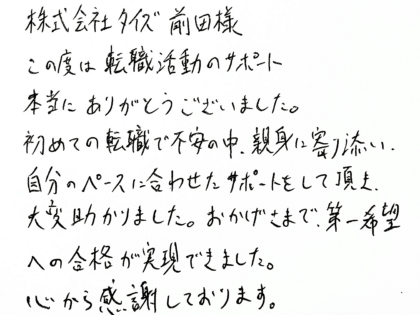 株式会社タイズ 前田様
この度は転職活動のサポート
本当にありがとうございました。
初めての転職で不安の中、親身に寄り添い、
自分のペースに合わせたサポートをして頂き、
大変助かりました。おかげさまで、第一希望
への合格が実現できました。
心から感謝しております。